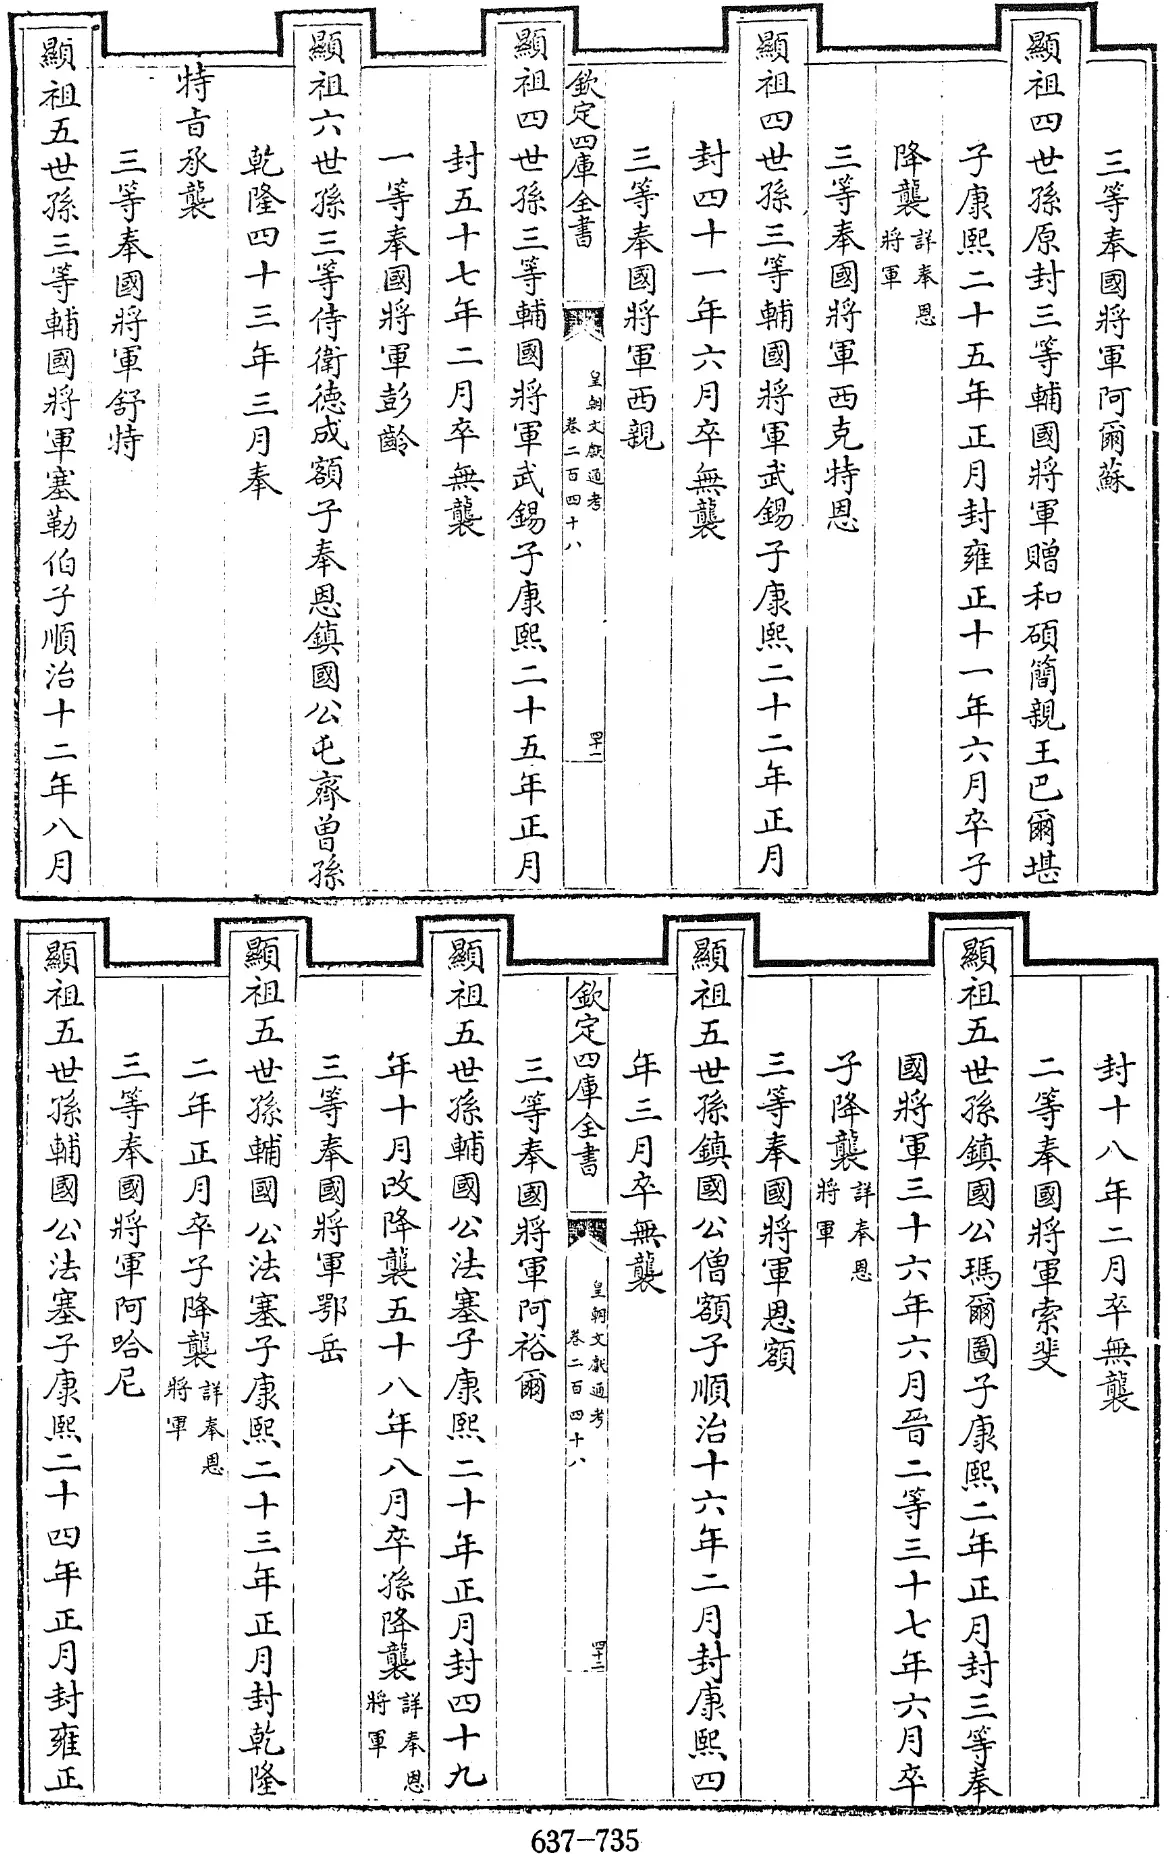 三等奉國將軍阿爾蘇
顯祖四世孫原封三等輔國將軍贈和碩簡親王巴爾堪
子康熙二十五年正月封雍正十一年六月卒子
降襲詳奉恩將軍
三等奉國將軍西克特恩
顯祖四世孫三等輔國將軍武錫子康熙二十二年正月
封四十一年六月卒無襲
三等奉國將軍西親
欽定四庫全書 皇朝文獻通考卷二百四十八 四十一
顯祖四世孫三等輔國將軍武錫子康熙二十五年正月
封五十七年二月卒無襲
一等奉國將軍彭齡
顯祖六世孫三等侍衛德成額子奉恩鎮國公屯齊曾孫
乾隆四十三年三月奉
特旨承襲
三等奉國將軍舒特
顯祖五世孫三等輔國將軍塞勒伯子順治十二年八月
封十八年二月卒無襲
二等奉國將軍索斐
顯祖五世孫鎮國公瑪爾圖子康熙二年正月封三等奉
國將軍三十六年六月晉二等三十七年六月卒
子降襲詳奉恩將軍
三等奉國將軍恩額
顯祖五世孫鎮國公僧額子順治十六年二月封康熙四
年三月卒無襲
三等奉國將軍阿裕爾
欽定四庫全書 皇朝文獻通考卷二百四十八 四十二
顯祖五世孫輔國公法塞子康熙二十年正月封四十九
年十月改降襲五十八年八月卒孫降襲詳奉恩將軍
三等奉國將軍鄂岳
顯祖五世孫輔國公法塞子康熙二十三年正月封乾隆
二年正月卒子降襲詳奉恩將軍
三等奉國將軍阿哈尼
顯祖五世孫輔國公法塞子康熙二十四年正月封雍正
637-735